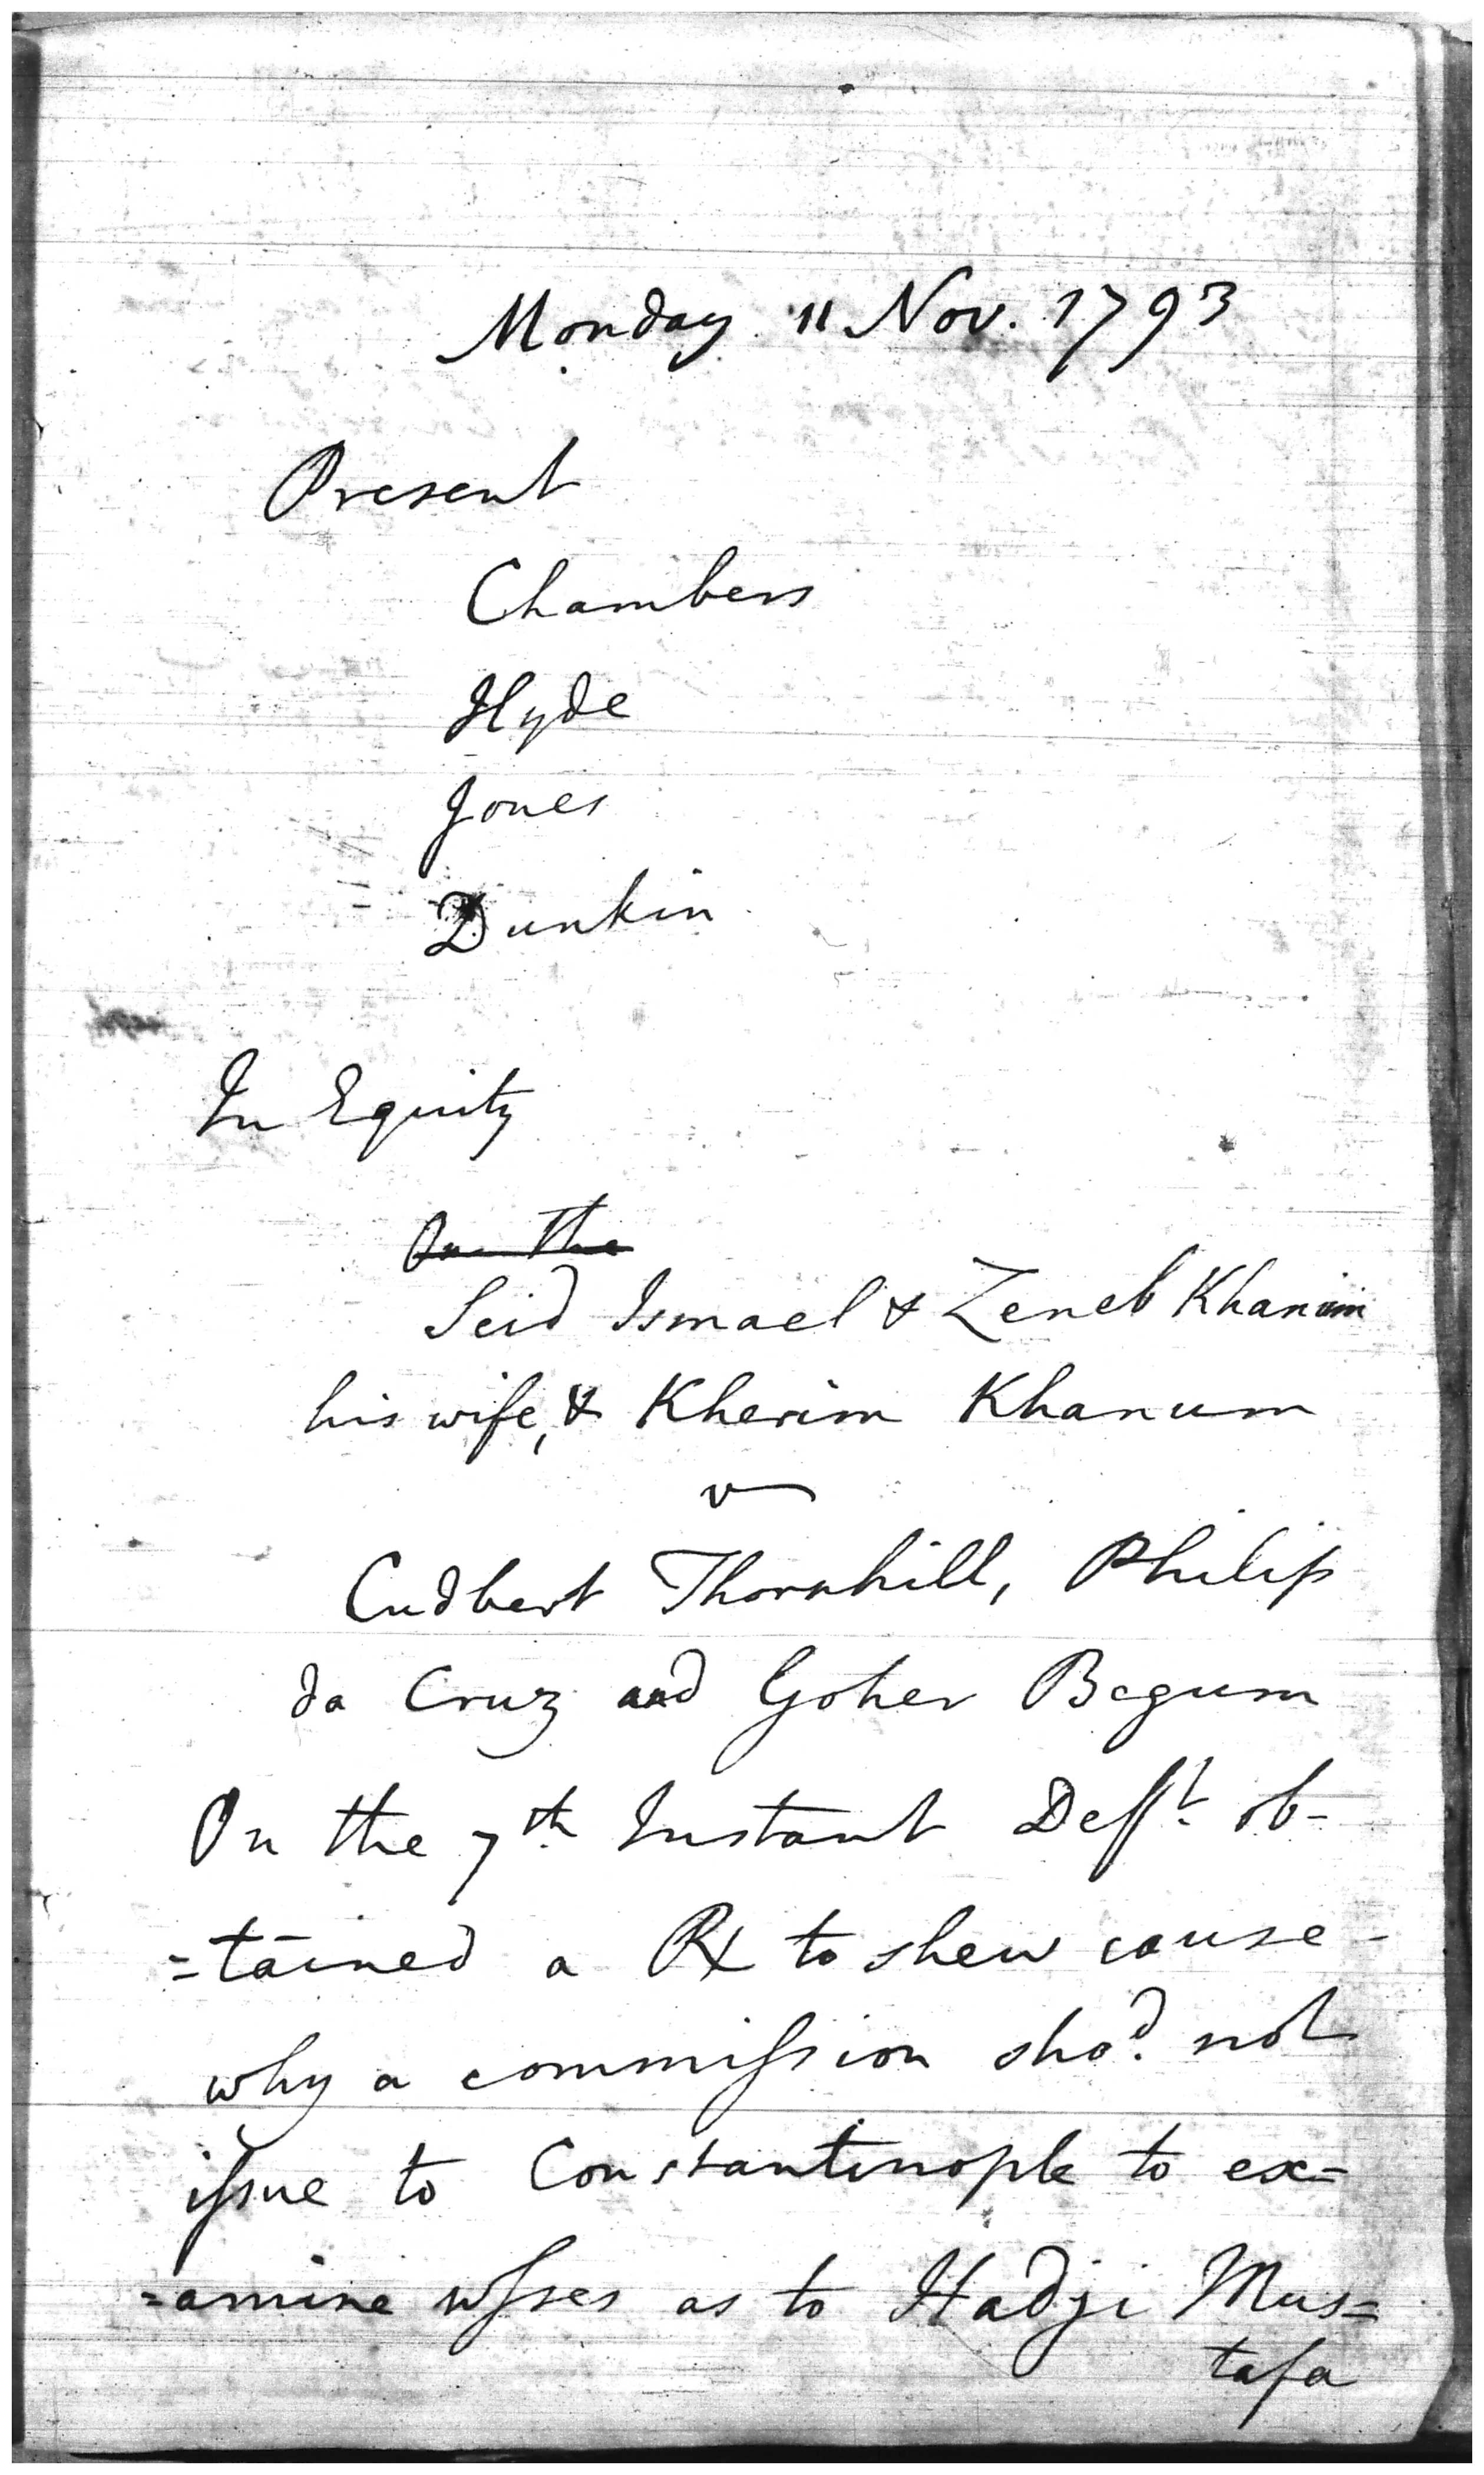 Monday 11 Nov. 1793
Present
Chambers
Hyde
Jones
Dunkin
In Equity
On the
Seid Ismael & Zeneb Khanum
his wife, & Kherim Khanum
v
Cudbert Thornhill, Philip
da Cruz and Goher Begum
On the 7th Instant Defft. ob-
=tained a Rx to shew cause -
why a commiſsion shod. not
iſsue to Constantinople to ex=
=amine wſses as to Hadji Mus=
tafa